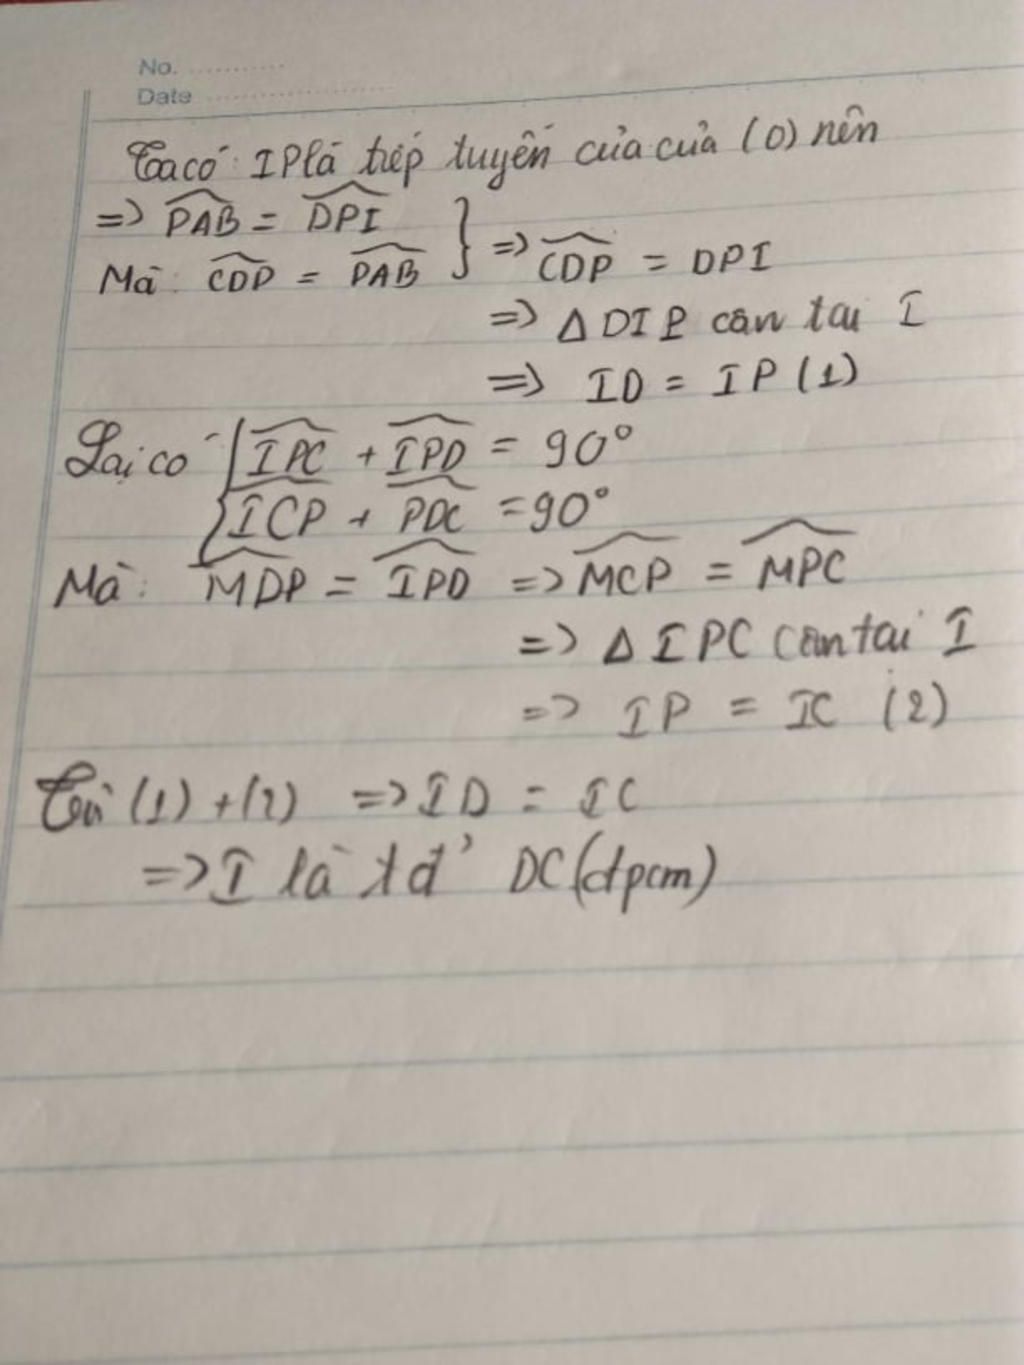 No. ............
Date ....................
Ta có: IP là tiếp tuyến của của (O) nên
=> PAB = DPI
Mà: CDP = PAB } => CDP = DPI
=> Δ DIP cân tai I
=> ID = IP (1)
Lại có { IPC + IPD = 90°
ICP + PDC = 90°
Mà: MDP = IPD => MCP = MPC
=> Δ IPC cân tai I
=> IP = IC (2)
Từ (1) + (2) => ID = IC
=> I là tđ' DC (đpcm)